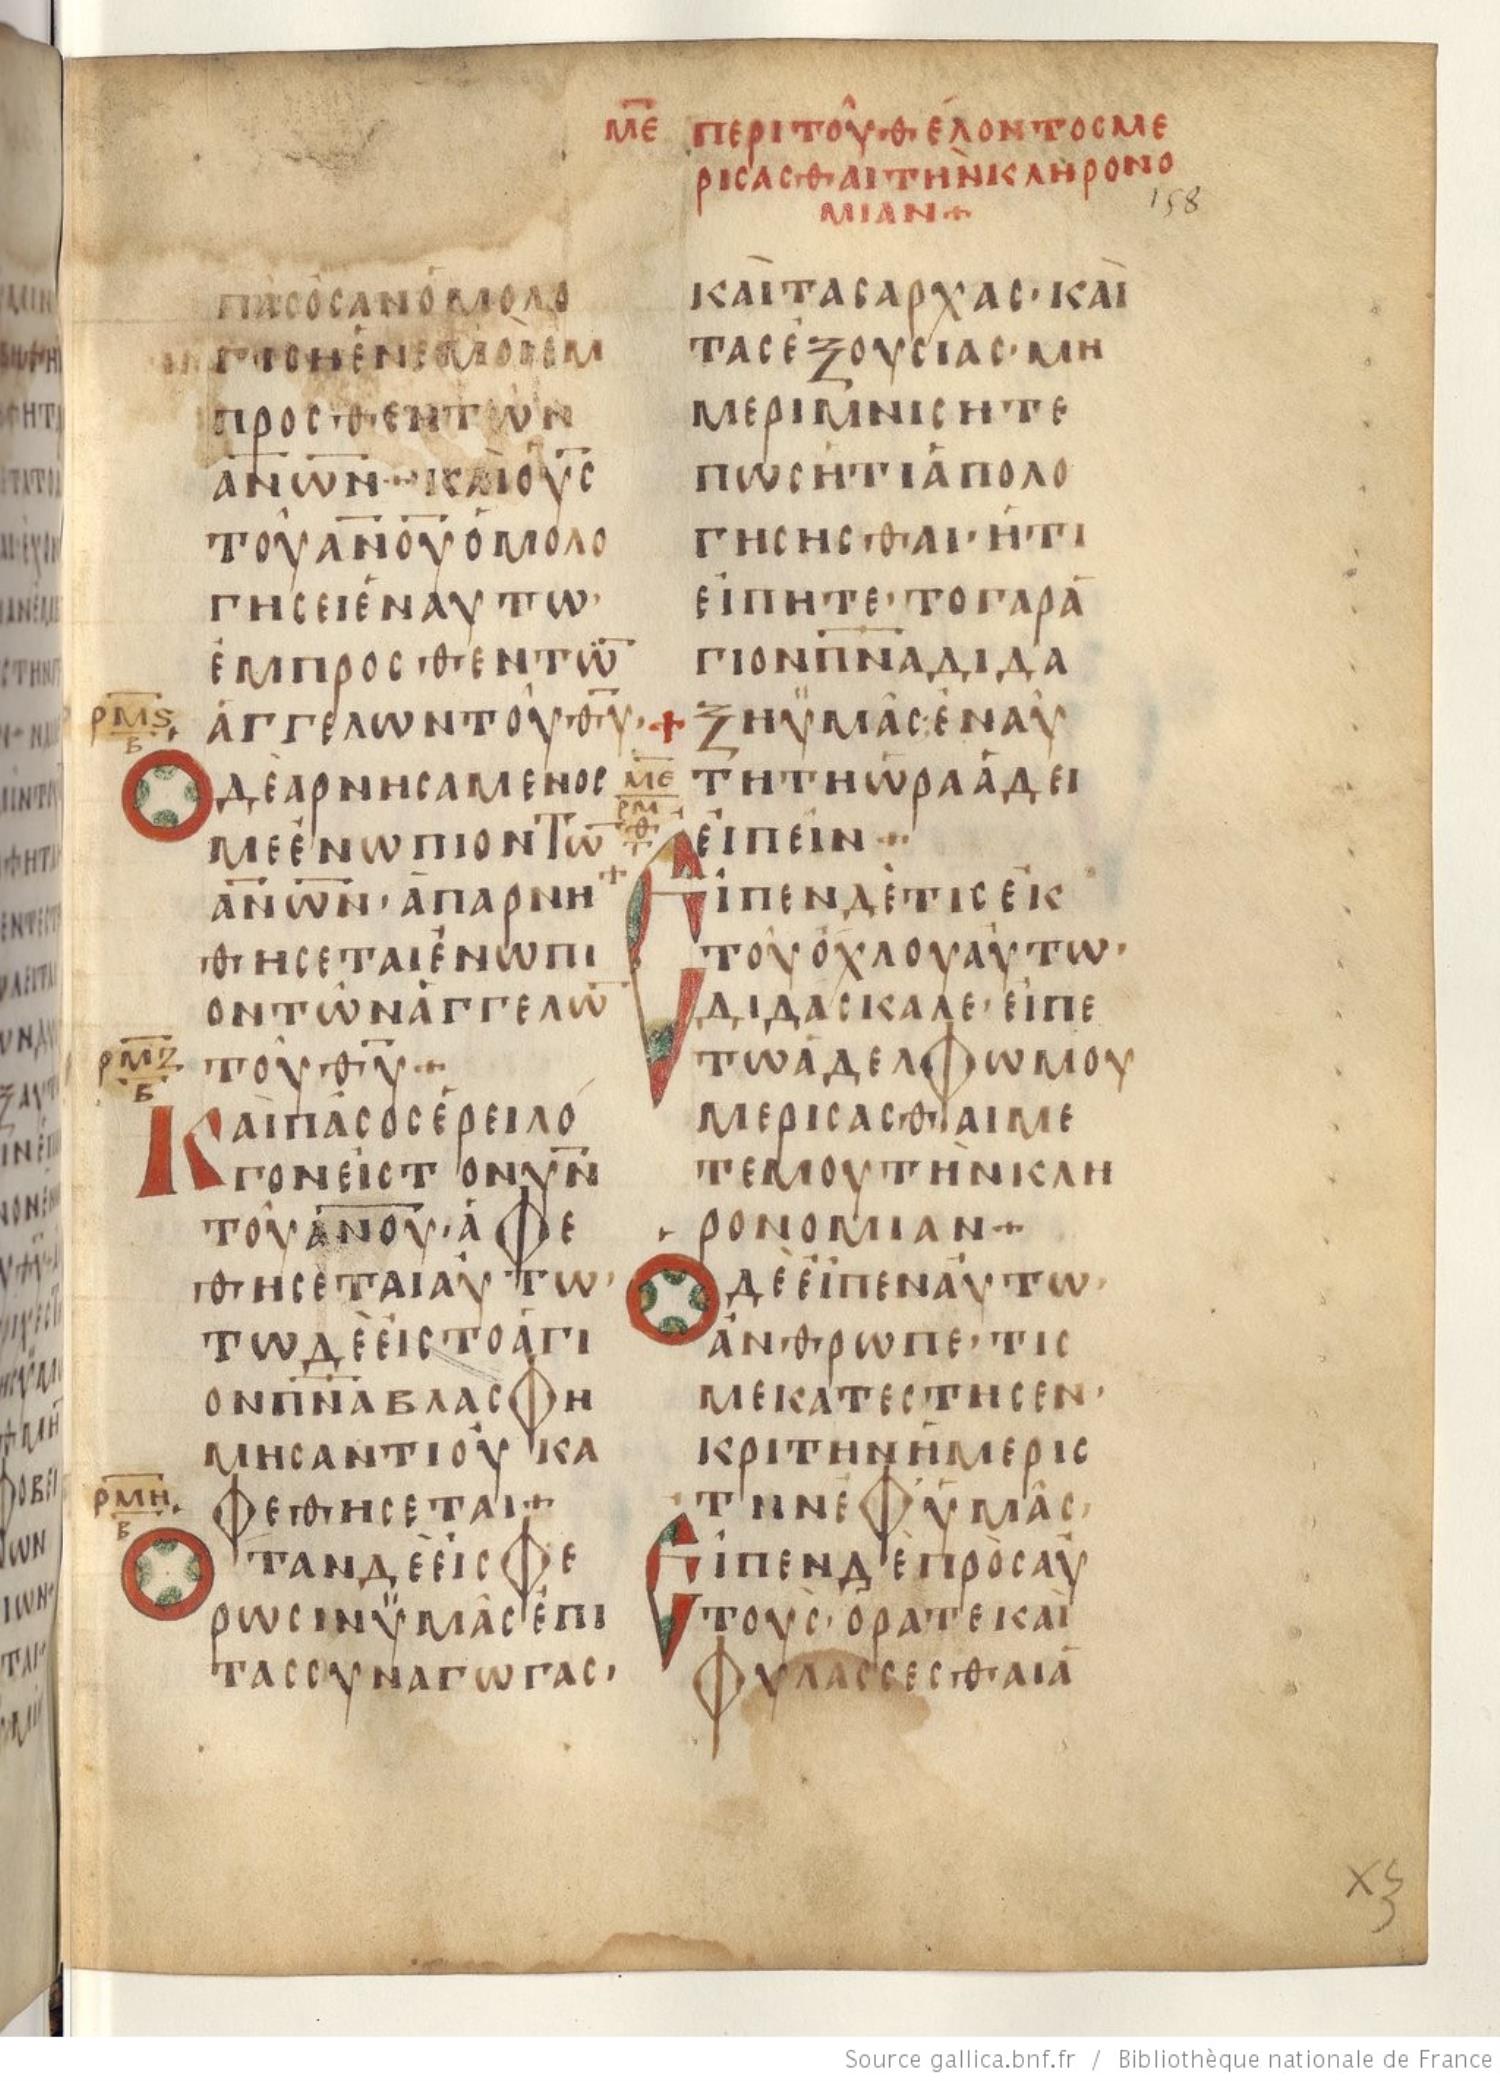 ΜΕ ΠΕΡΙ ΤΟΥ ΘΕΛΟΝΤΟΣ ΜΕ
ΡΙΣΑΣΘΑΙ ΤΗΝ ΚΛΗΡΟΝΟ
ΜΙΑΝ +
158
ΠΑΣ ΟΣ ΑΝ ΟΜΟΛΟ
ΓΗΣΗ ΕΝ ΕΜΟΙ ΕΜ
ΠΡΟΣΘΕΝ ΤΩΝ
ΑΝΩΝ + ΚΑΙ Ο ΥΣ
ΤΟΥ ΑΝΟΥ ΟΜΟΛΟ
ΓΗΣΕΙ ΕΝ ΑΥΤΩ·
ΕΜΠΡΟΣΘΕΝ ΤΩ̅
ΑΓΓΕΛΩΝ ΤΟΥ ΘΥ· +
ΡΜϚ
Β
Ο ΔΕ ΑΡΝΗΣΑΜΕΝΟΣ
ΜΕ ΕΝΩΠΙΟΝ ΤΩ̅
ΑΝΩΝ· ΑΠΑΡΝΗ
ΘΗΣΕΤΑΙ ΕΝΩΠΙ
ΟΝ ΤΩΝ ΑΓΓΕΛΩ̅
ΤΟΥ ΘΥ +
ΡΜΖ
Β
ΚΑΙ ΠΑΣ ΟΣ ΕΡΕΙ ΛΟ
ΓΟΝ ΕΙΣ ΤΟΝ ΥΝ
ΤΟΥ ΑΝΟΥ· ΑΦΕ
ΘΗΣΕΤΑΙ ΑΥΤΩ·
ΤΩ ΔΕ ΕΙΣ ΤΟ ΑΓΙ
ΟΝ ΠΝΑ ΒΛΑΣΦΗ
ΜΗΣΑΝΤΙ ΟΥΚ Α
ΦΕΘΗΣΕΤΑΙ +
ΡΜΗ
Β
ΟΤΑΝ ΔΕ ΕΙΣΦΕ
ΡΩΣΙΝ ΥΜΑΣ ΕΠΙ
ΤΑΣ ΣΥΝΑΓΩΓΑΣ,
ΚΑΙ ΤΑΣ ΑΡΧΑΣ· ΚΑΙ
ΤΑΣ ΕΞΟΥΣΙΑΣ· ΜΗ
ΜΕΡΙΜΝΙΣΗΤΕ
ΠΩΣ Η ΤΙ ΑΠΟΛΟ
ΓΗΣΗΣΘΑΙ· Η ΤΙ
ΕΙΠΗΤΕ· ΤΟ ΓΑΡ Α
ΓΙΟΝ ΠΝΑ ΔΙΔΑ
ΞΗ ΥΜΑΣ· ΕΝ ΑΥ
ΤΗ ΤΗ ΩΡΑ Α ΔΕΙ
ΕΙΠΕΙΝ +
ΜΕ
ΡΜΘ
ΕΙΠΕΝ ΔΕ ΤΙΣ ΕΚ
ΤΟΥ ΟΧΛΟΥ ΑΥΤΩ·
ΔΙΔΑΣΚΑΛΕ· ΕΙΠΕ
ΤΩ ΑΔΕΛΦΩ ΜΟΥ
ΜΕΡΙΣΑΣΘΑΙ ΜΕ
Τ ΕΜΟΥ ΤΗΝ ΚΛΗ
ΡΟΝΟΜΙΑΝ +
Ο ΔΕ ΕΙΠΕΝ ΑΥΤΩ·
ΑΝΘΡΩΠΕ· ΤΙΣ
ΜΕ ΚΑΤΕΣΤΗΣΕΝ·
ΚΡΙΤΗΝ Η ΜΕΡΙΣ
ΤΗΝ ΕΦ ΥΜΑΣ,
ΕΙΠΕΝ ΔΕ ΠΡΟΣ ΑΥ
ΤΟΥΣ· ΟΡΑΤΕ ΚΑΙ
ΦΥΛΑΣΣΕΣΘΑΙ Α
Source gallica.bnf.fr / Bibliothèque nationale de France